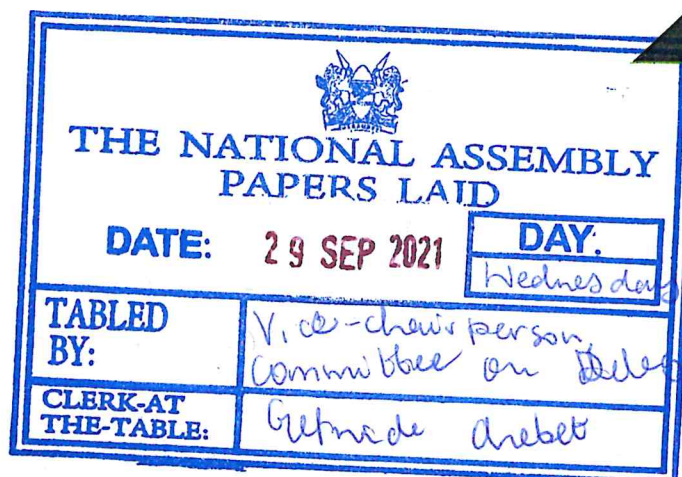 THE NATIONAL ASSEMBLY
PAPERS LAID
DATE: 29 SEP 2021 DAY:
Wednesday
TABLED BY: Vice-chairperson,
Committee on
CLERK-AT THE-TABLE: Chebet